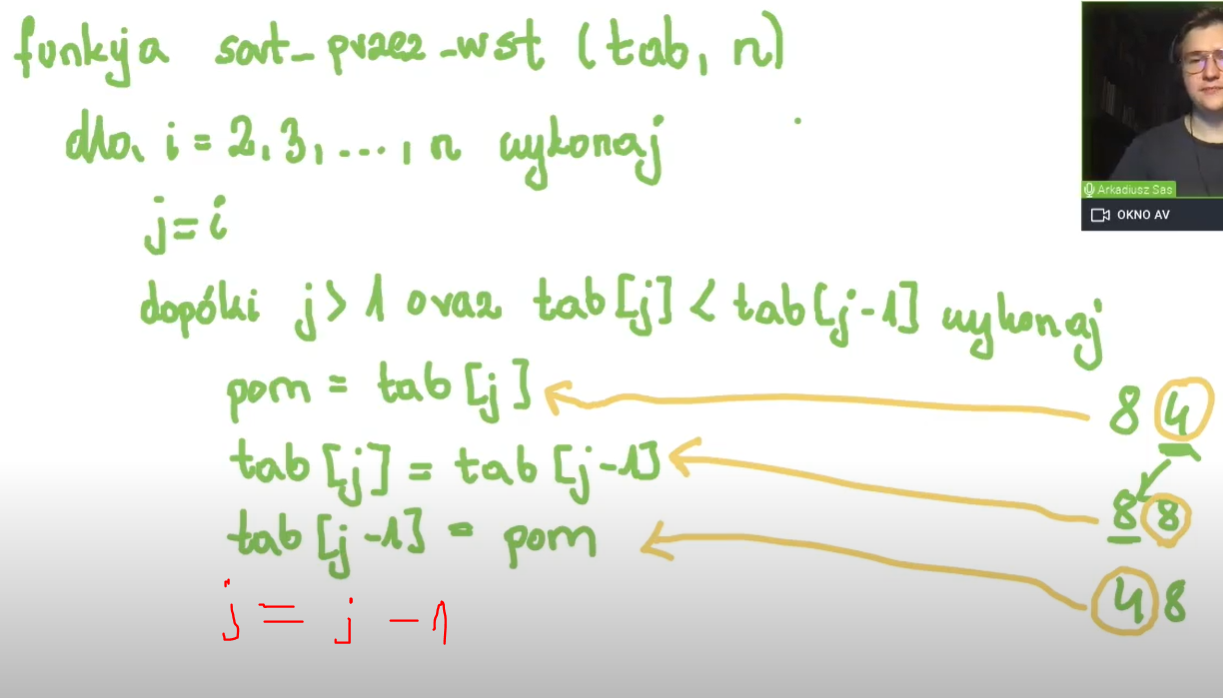 funkcja sort_przez_wst (tab, n)
dla i = 2,3,...,n wykonaj
j=i
dopóki j>1 oraz tab[j]<tab[j-1] wykonaj
pom = tab[j]
8 4
tab[j] = tab[j-1]
8 8
tab[j-1] = pom
4 8
j = j -1
Arkadiusz Sas
OKNO AV